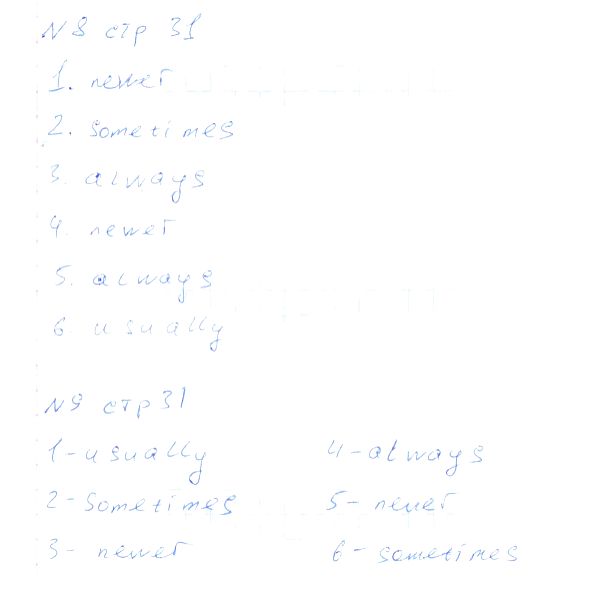 N8 стр 31
1. newer
2. sometimes
3. always
4. newer
5. always
6. usually
N9 стр 31
1-usually 4-always
2-Sometimes 5-never
3- newer 6-sometimes